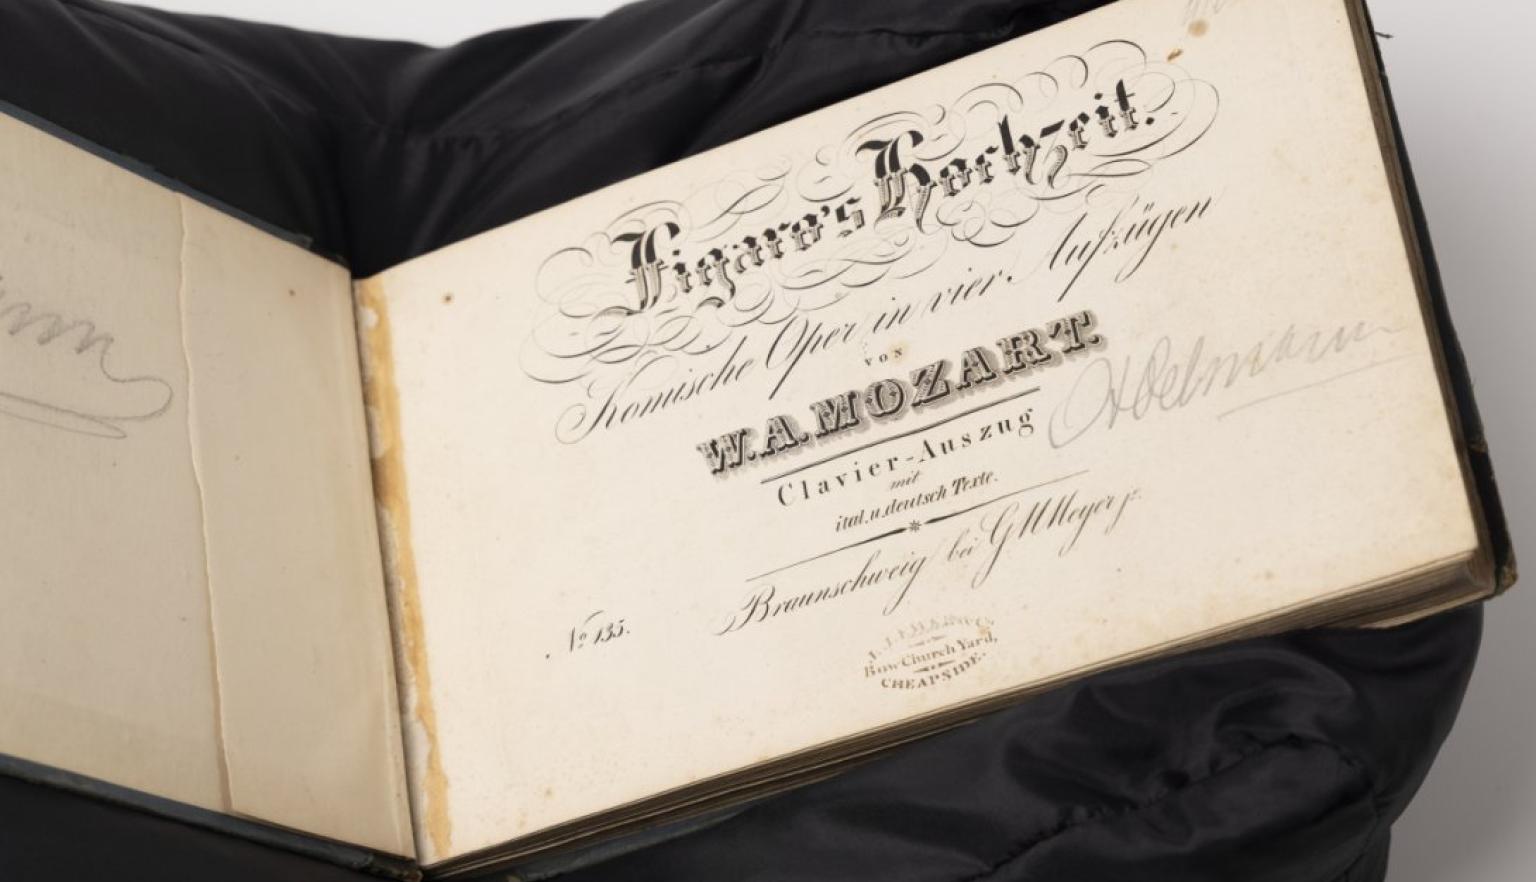 Figaro's Hochzeit.
Komische Oper in vier Aufzügen
von
W.A.MOZART.
Clavier-Auszug
mit
ital.u.deutsch Texte.
Braunschweig bei G M Meyer jr.
No 135.
Bow Church Yard,
CHEAPSIDE.